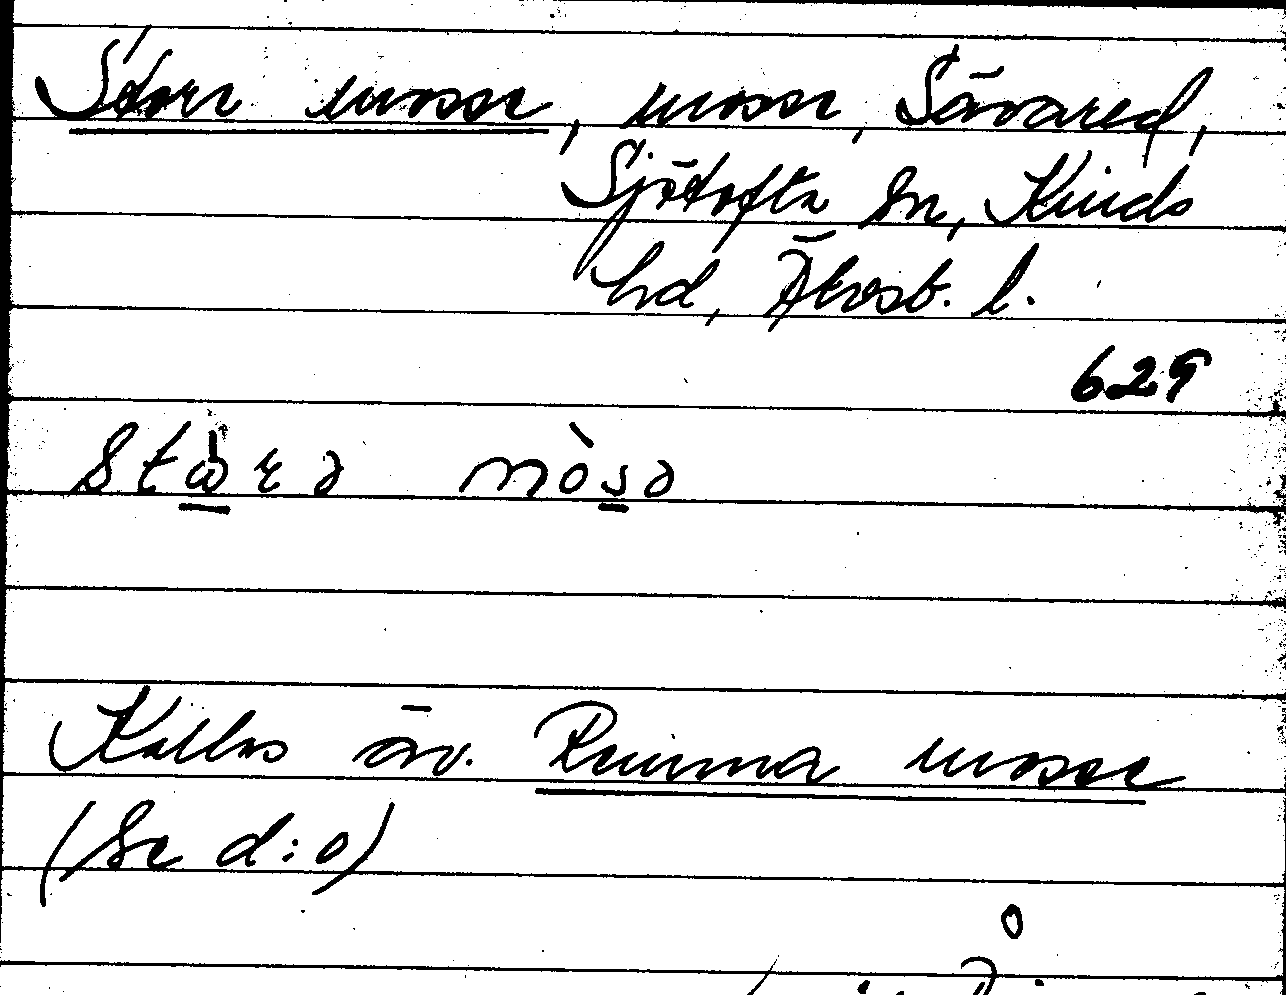 Store mosse, mosse, Sävared,
Sjötofta sn, Kinds
hd, Älvsb. l.
629
stωrə mòsə
Kallas äv. Rumma mosse
(Se d:o)